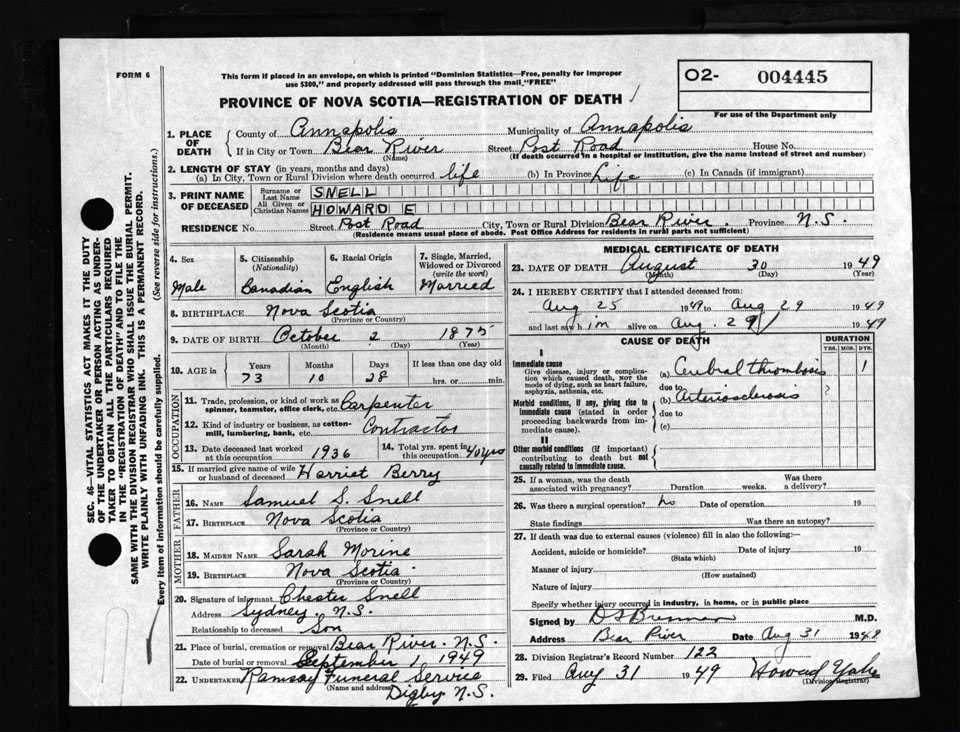 FORM 6
This form if placed in an envelope, on which is printed "Dominion Statistics—Free, penalty for improper
use $300," and properly addressed will pass through the mail "FREE"
O2- 004445
For use of the Department only
PROVINCE OF NOVA SCOTIA—REGISTRATION OF DEATH
1. PLACE OF DEATH
County of Annapolis Municipality of Annapolis
If in City or Town Bear River Street Post Road House No.
(Name) (If death occurred in a hospital or institution, give the name instead of street and number)
2. LENGTH OF STAY (in years, months and days)
(a) In City, Town or Rural Division where death occurred life (b) In Province Life (c) In Canada (if immigrant)
3. PRINT NAME OF DECEASED
Surname or Last Name SNELL
All Given or Christian Names HOWARD E
RESIDENCE No. Street Post Road City, Town or Rural Division Bear River. Province N.S.
(Residence means usual place of abode. Post Office Address for residents in rural parts not sufficient)
4. Sex Male
5. Citizenship (Nationality) Canadian
6. Racial Origin English
7. Single, Married, Widowed or Divorced (write the word) Married
8. BIRTHPLACE Nova Scotia
(Province or Country)
9. DATE OF BIRTH October 2 1875
(Month) (Day) (Year)
10. AGE in Years Months Days If less than one day old
73 10 28 hrs. or min.
OCCUPATION
11. Trade, profession, or kind of work as spinner, teamster, office clerk, etc. Carpenter
12. Kind of industry or business, as cotton-mill, lumbering, bank, etc. Contractor
13. Date deceased last worked at this occupation 1936
14. Total yrs. spent in this occupation 40 yrs
15. If married give name of wife or husband of deceased Harriet Berry
FATHER
16. NAME Samuel S. Snell
17. BIRTHPLACE Nova Scotia
(Province or Country)
MOTHER
18. MAIDEN NAME Sarah Morine
19. BIRTHPLACE Nova Scotia
(Province or Country)
20. Signature of informant Chester Snell
Address Sydney, N.S.
Relationship to deceased Son
21. Place of burial, cremation or removal Bear River. N.S.
Date of burial or removal September 1, 1949
22. UNDERTAKER Ramsay Funeral Service
(Name and address) Digby N.S.
MEDICAL CERTIFICATE OF DEATH
23. DATE OF DEATH August 30 1949
(Month) (Day) (Year)
24. I HEREBY CERTIFY that I attended deceased from:
Aug 25 1949, to Aug 29 1949
and last saw him alive on Aug. 29 1949
CAUSE OF DEATH
DURATION
YRS. MOS. DYS.
I
Immediate cause
Give disease, injury or complication which caused death, not the mode of dying, such as heart failure, asphyxia, asthenia, etc.
(a) Cerebral thrombosis 1
due to
Morbid conditions, if any, giving rise to immediate cause (stated in order proceeding backwards from immediate cause).
(b) Arteriosclerosis
due to
(c)
II
Other morbid conditions (if important) contributing to death but not causally related to immediate cause.
25. If a woman, was the death associated with pregnancy? Duration weeks. Was there a delivery?
26. Was there a surgical operation? no Date of operation 19
State findings Was there an autopsy?
27. If death was due to external causes (violence) fill in also the following:—
Accident, suicide or homicide? Date of injury 19
(State which)
Manner of injury
(How sustained)
Nature of injury
Specify whether injury occurred in industry, in home, or in public place
Signed by M.D.
Address Bear River Date Aug 31 1949
28. Division Registrar's Record Number 122
29. Filed Aug 31 1949 Howard
(Division Registrar)
SEC. 46—VITAL STATISTICS ACT MAKES IT THE DUTY
OF THE UNDERTAKER OR PERSON ACTING AS UNDER-
TAKER TO OBTAIN ALL THE PARTICULARS REQUIRED
IN THE "REGISTRATION OF DEATH" AND TO FILE THE
SAME WITH THE DIVISION REGISTRAR WHO SHALL ISSUE THE BURIAL PERMIT.
WRITE PLAINLY WITH UNFADING INK. THIS IS A PERMANENT RECORD.
Every item of information should be carefully supplied. (See reverse side for instructions.)